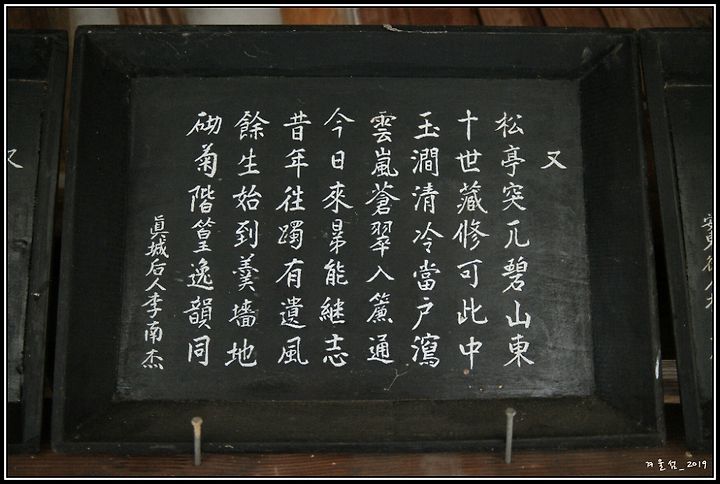 又
松亭突兀碧山東
十世藏修可此中
玉澗清冷當户瀉
雲嵐蒼翠入簾通
今日來晜能継志
昔年徃躅有遺風
餘生始到羹墻地
砌菊階篁逸韻同
眞城后人李南杰
又
겨울섬_2019